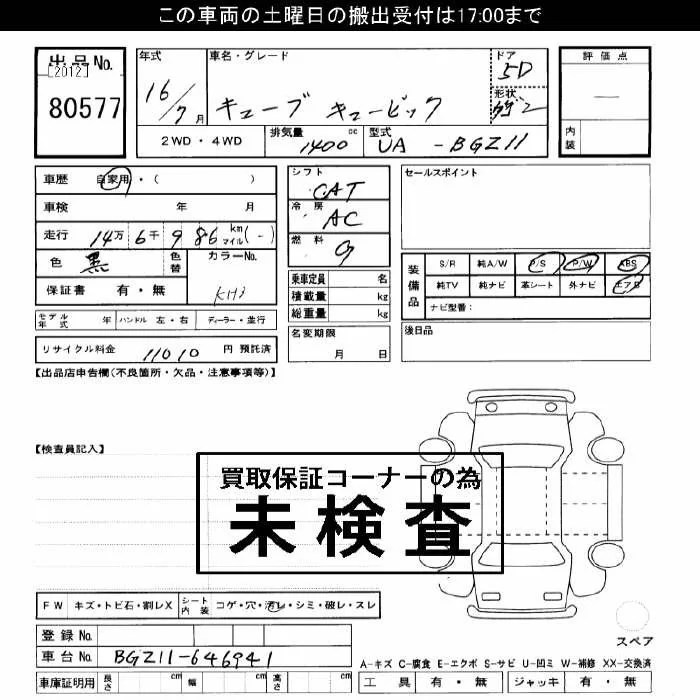 この車両の土曜日の搬出受付は17:00まで
出品No.
[2012]
80577
年式
16/7月
車名・グレード
キューブ キュービック
ドア
5D
形状
評価点
—
内装
2WD・4WD
排気量
1400 cc
型式
UA - BGZ11
車歴 自家用・( )
車検 年 月
走行 14万 6千 986 km マイル(-)
色 黒
色替
カラーNo.
KH3
保証書 有・無
モデル年式 年 ハンドル 左・右 ディーラー・並行
リサイクル料金 11010 円 預託済
シフト CAT
冷房 AC
燃料 G
乗車定員 名
積載量 kg
総重量 kg
名変期限
月 日
セールスポイント
装備品
S/R 純A/W P/S P/W ABS
純TV 純ナビ 革シート 外ナビ エアB
ナビ型番:
後日品
【出品店申告欄(不良箇所・欠品・注意事項等)】
【検査員記入】
買取保証コーナーの為
未検査
FW キズ・トビ石・割レX シート内装 コゲ・穴・汚レ・シミ・破レ・スレ
登録No.
車台No. BGZ11-646941
車庫証明用 長さ cm 幅 cm 高さ cm
スペア
A-キズ C-腐食 E-エクボ S-サビ U-凹ミ W-補修 XX-交換済
工具 有・無 ジャッキ 有・無